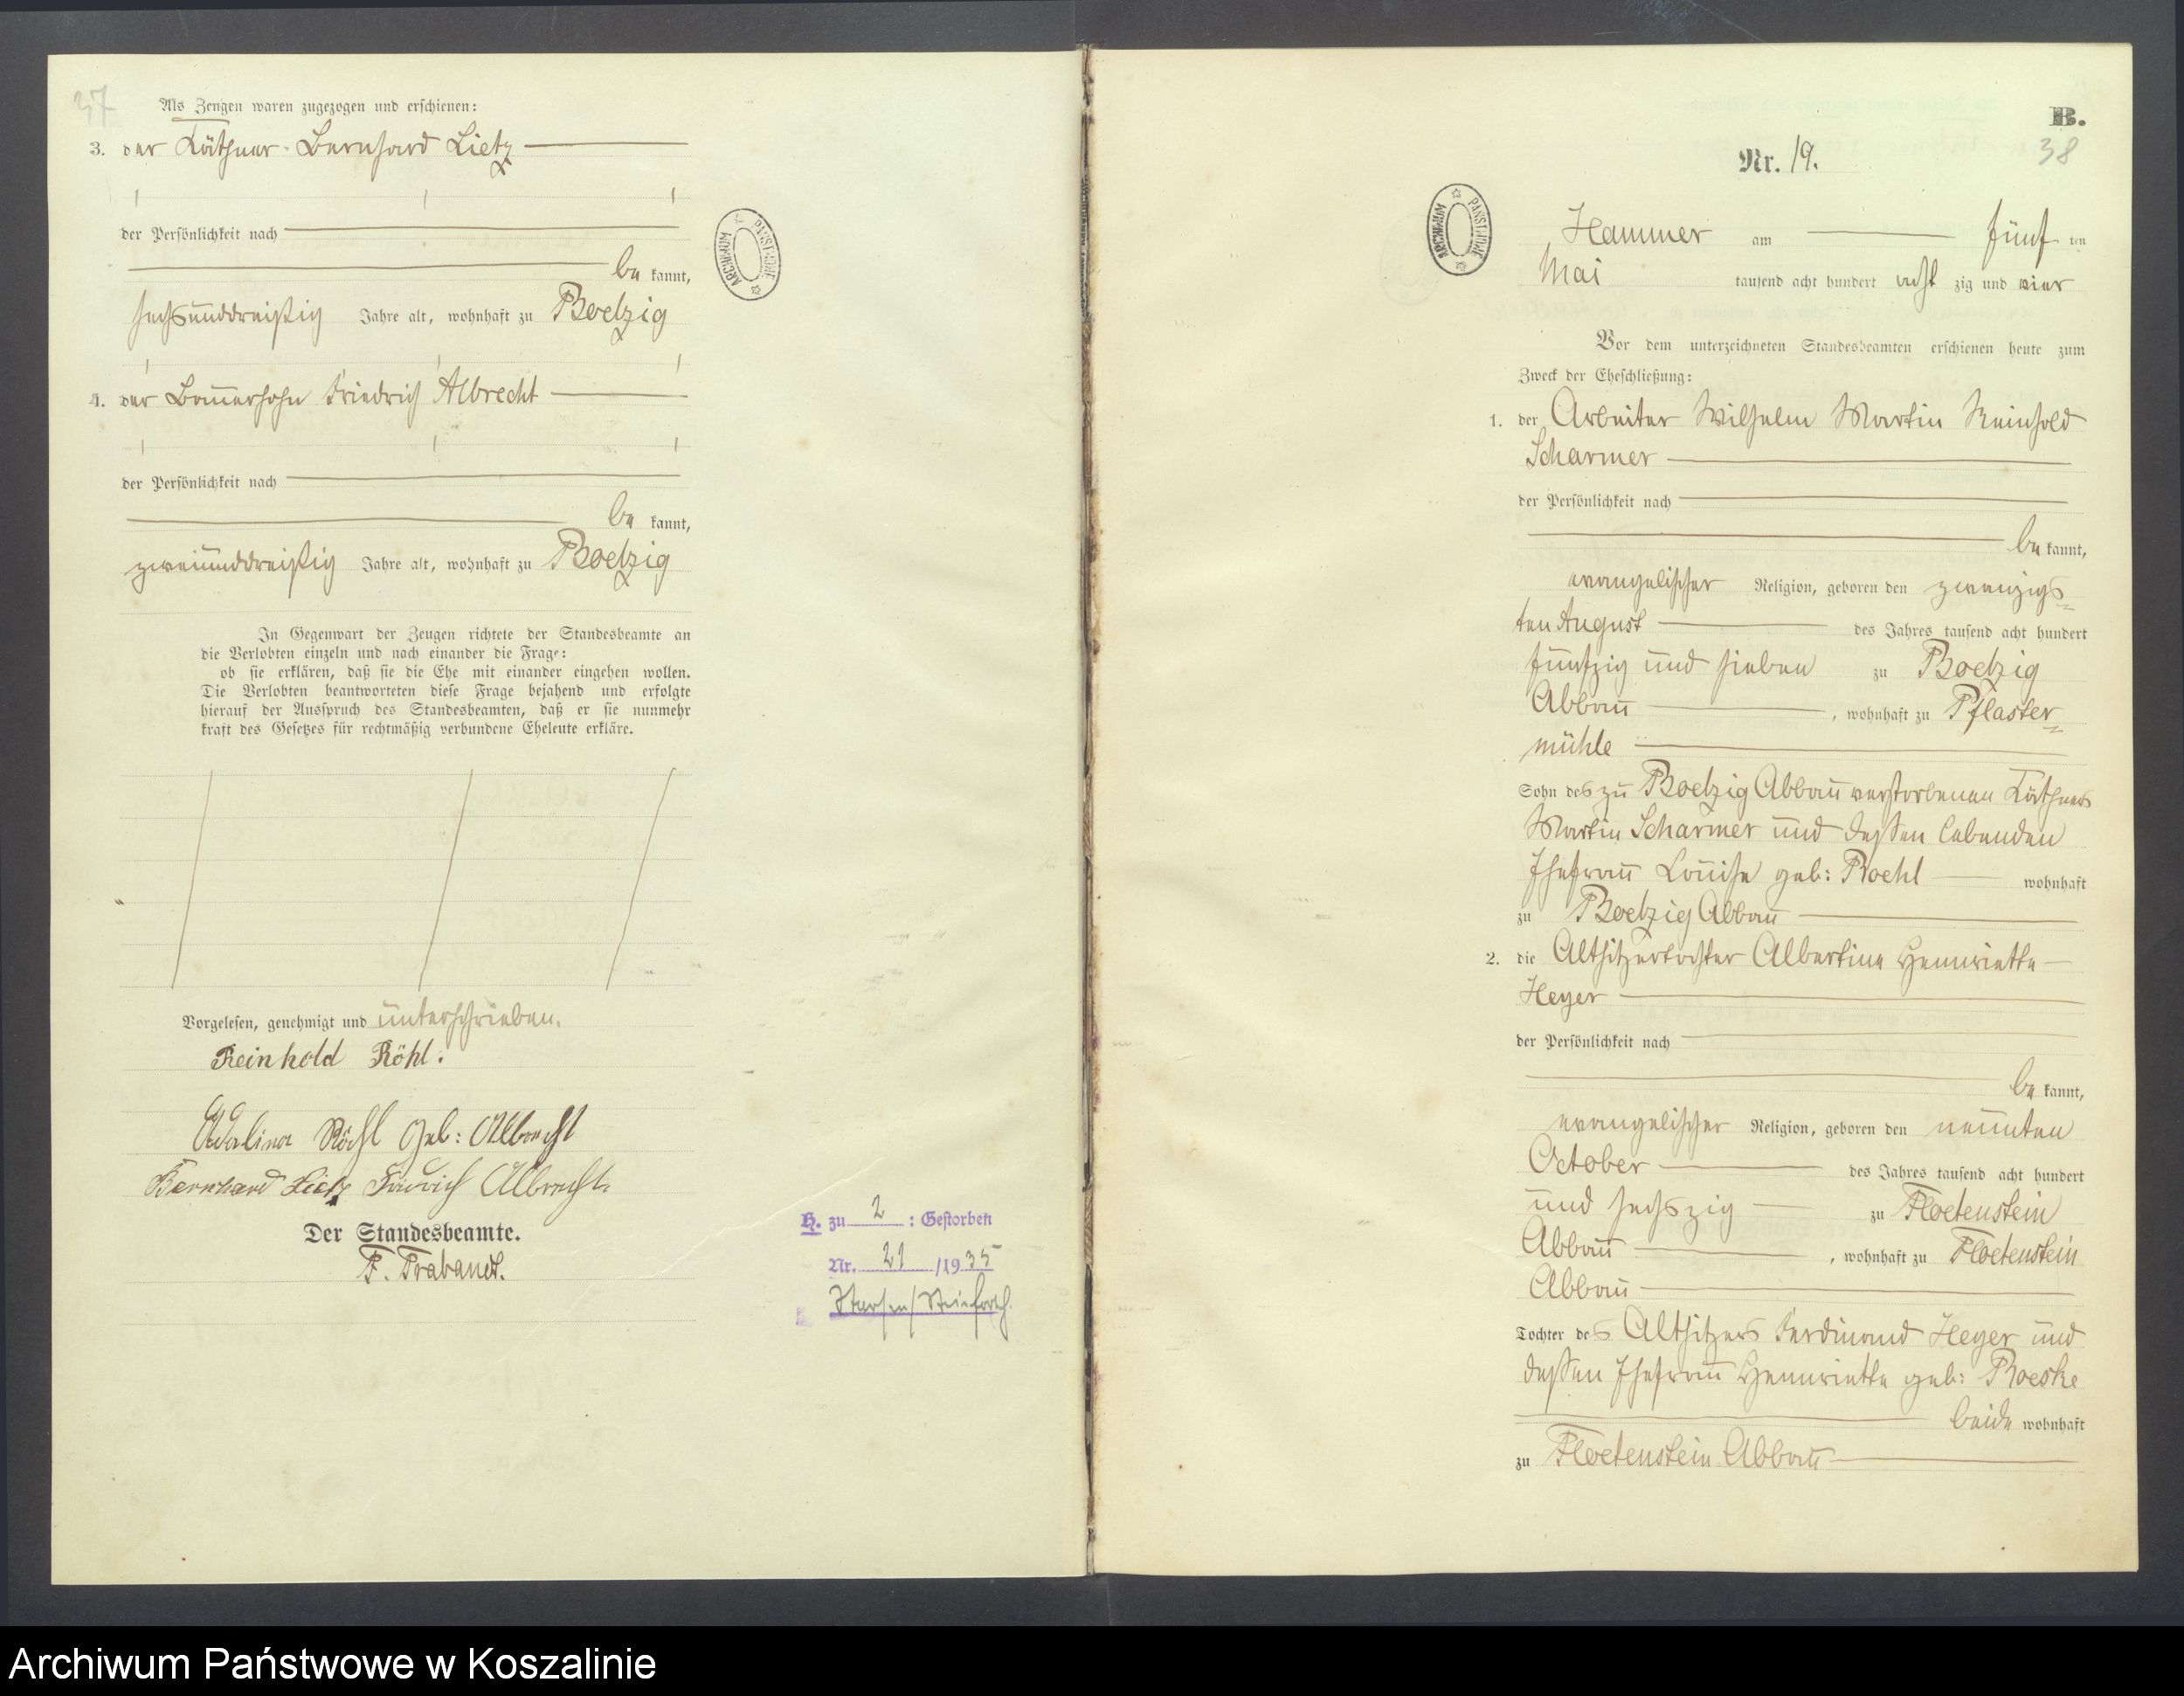 37
Als Zeugen waren zugezogen und erschienen:
3. der Käthner Bernhard Lietz
der Persönlichkeit nach
be kannt,
sechsunddreißig Jahre alt, wohnhaft zu Boetzig
4. der Bauersohn Friedrich Albrecht
der Persönlichkeit nach
be kannt,
zweiunddreißig Jahre alt, wohnhaft zu Boetzig
In Gegenwart der Zeugen richtete der Standesbeamte an
die Verlobten einzeln und nach einander die Frage:
ob sie erklären, daß sie die Ehe mit einander eingehen wollen.
Die Verlobten beantworteten diese Frage bejahend und erfolgte
hierauf der Ausspruch des Standesbeamten, daß er sie nunmehr
kraft des Gesetzes für rechtmäßig verbundene Eheleute erkläre.
Vorgelesen, genehmigt und unterschrieben.
Reinhold Röhl.
Röhl geb: Albrecht
Bernhard Lietz Friedrich Albrecht.
Der Standesbeamte.
F. Trabandt.
ARCHIWUM PAŃSTWOWE
H. zu 2 : Gestorben
Nr. 21 /1935
B.
38
Nr. 19.
ARCHIWUM PAŃSTWOWE
Hammer am fünf ten
Mai tausend acht hundert acht zig und vier
Vor dem unterzeichneten Standesbeamten erschienen heute zum
Zweck der Eheschließung:
1. der Arbeiter Wilhelm Martin Reinhold
Scharmer
der Persönlichkeit nach
be kannt,
evangelischer Religion, geboren den zwanzigs=
ten August des Jahres tausend acht hundert
fünfzig und sieben zu Boetzig
Abbau , wohnhaft zu Pflaster=
mühle
Sohn des zu Boetzig Abbau verstorbenen Käthners
Martin Scharmer und dessen lebenden
Ehefrau Louise geb: Roehl wohnhaft
zu Boetzig Abbau
2. die Altsitzertochter Albertine Henriette
Heyer
der Persönlichkeit nach
be kannt,
evangelischer Religion, geboren den neunten
October des Jahres tausend acht hundert
und sechszig zu Floetenstein
Abbau , wohnhaft zu Floetenstein
Abbau
Tochter des Altsitzers Ferdinand Heyer und
dessen Ehefrau Henriette geb: Roeske
beide wohnhaft
zu Floetenstein Abbau
Archiwum Państwowe w Koszalinie